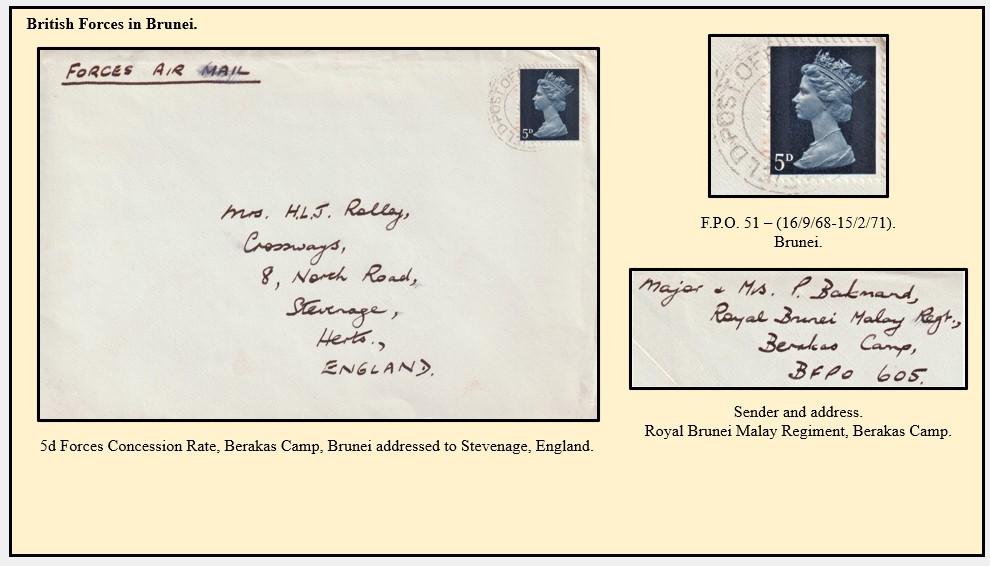 British Forces in Brunei.
FORCES AIR MAIL
FIELD POST OF
5D
Mrs. H.L.J. Rolley,
Crossways,
8, North Road,
Stevenage,
Herts.,
ENGLAND.
5d Forces Concession Rate, Berakas Camp, Brunei addressed to Stevenage, England.
FIELD POST OF
5D
F.P.O. 51 – (16/9/68-15/2/71).
Brunei.
Major & Mrs. P.
Royal Brunei Malay Regt.,
Berakas Camp,
BFPO 605.
Sender and address.
Royal Brunei Malay Regiment, Berakas Camp.